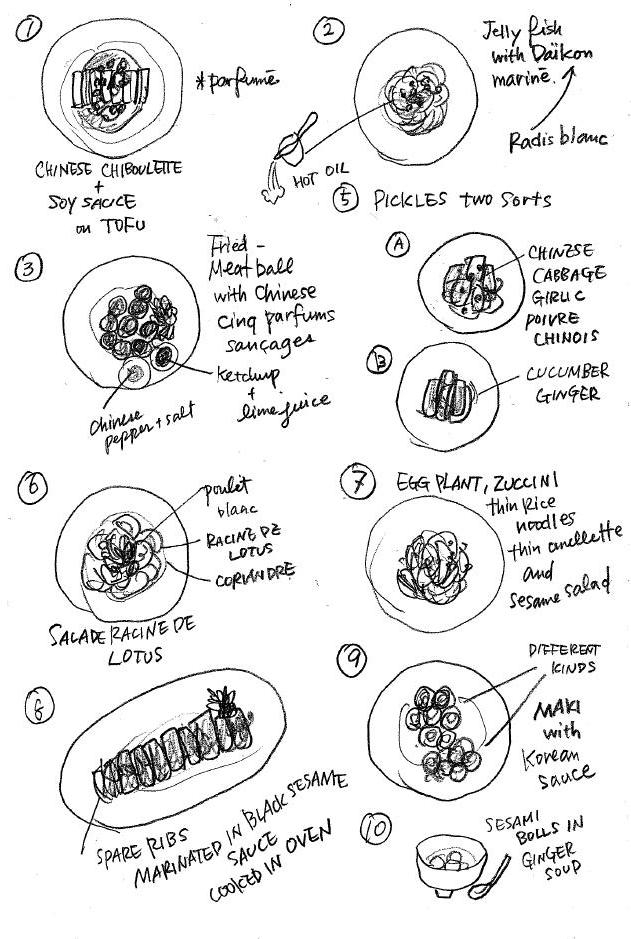 1
CHINESE CHIBOULETTE
+
SOY SAUCE
on TOFU
*parfumē
2
Jelly fish
with Daïkon
marinē.
Radis blanc
HOT OIL
3
Fried -
Meat ball
with Chinese
Cinq parfums
sançages
ketchup
+
lime juice
Chinese
pepper + salt
5 PICKLES two sorts
A
CHINESE
CABBAGE
GIRLIC
POIVRE
CHINOIS
B
CUCUMBER
GINGER
6
poulet
blanc
RACINE DE
LOTUS
CORIANDRE
SALADE RACINE DE
LOTUS
7 EGG PLANT, ZUCCINI
thin Rice
noodles
thin omellette
and
sesame salad
8
SPARE RIBS
MARINATED IN BLACK SESAME
SAUCE
COOKED IN OVEN
9
DIFFERENT
KINDS
MAKI
with
Korean
sauce
10
SESAMI
BOLLS IN
GINGER
SOUP